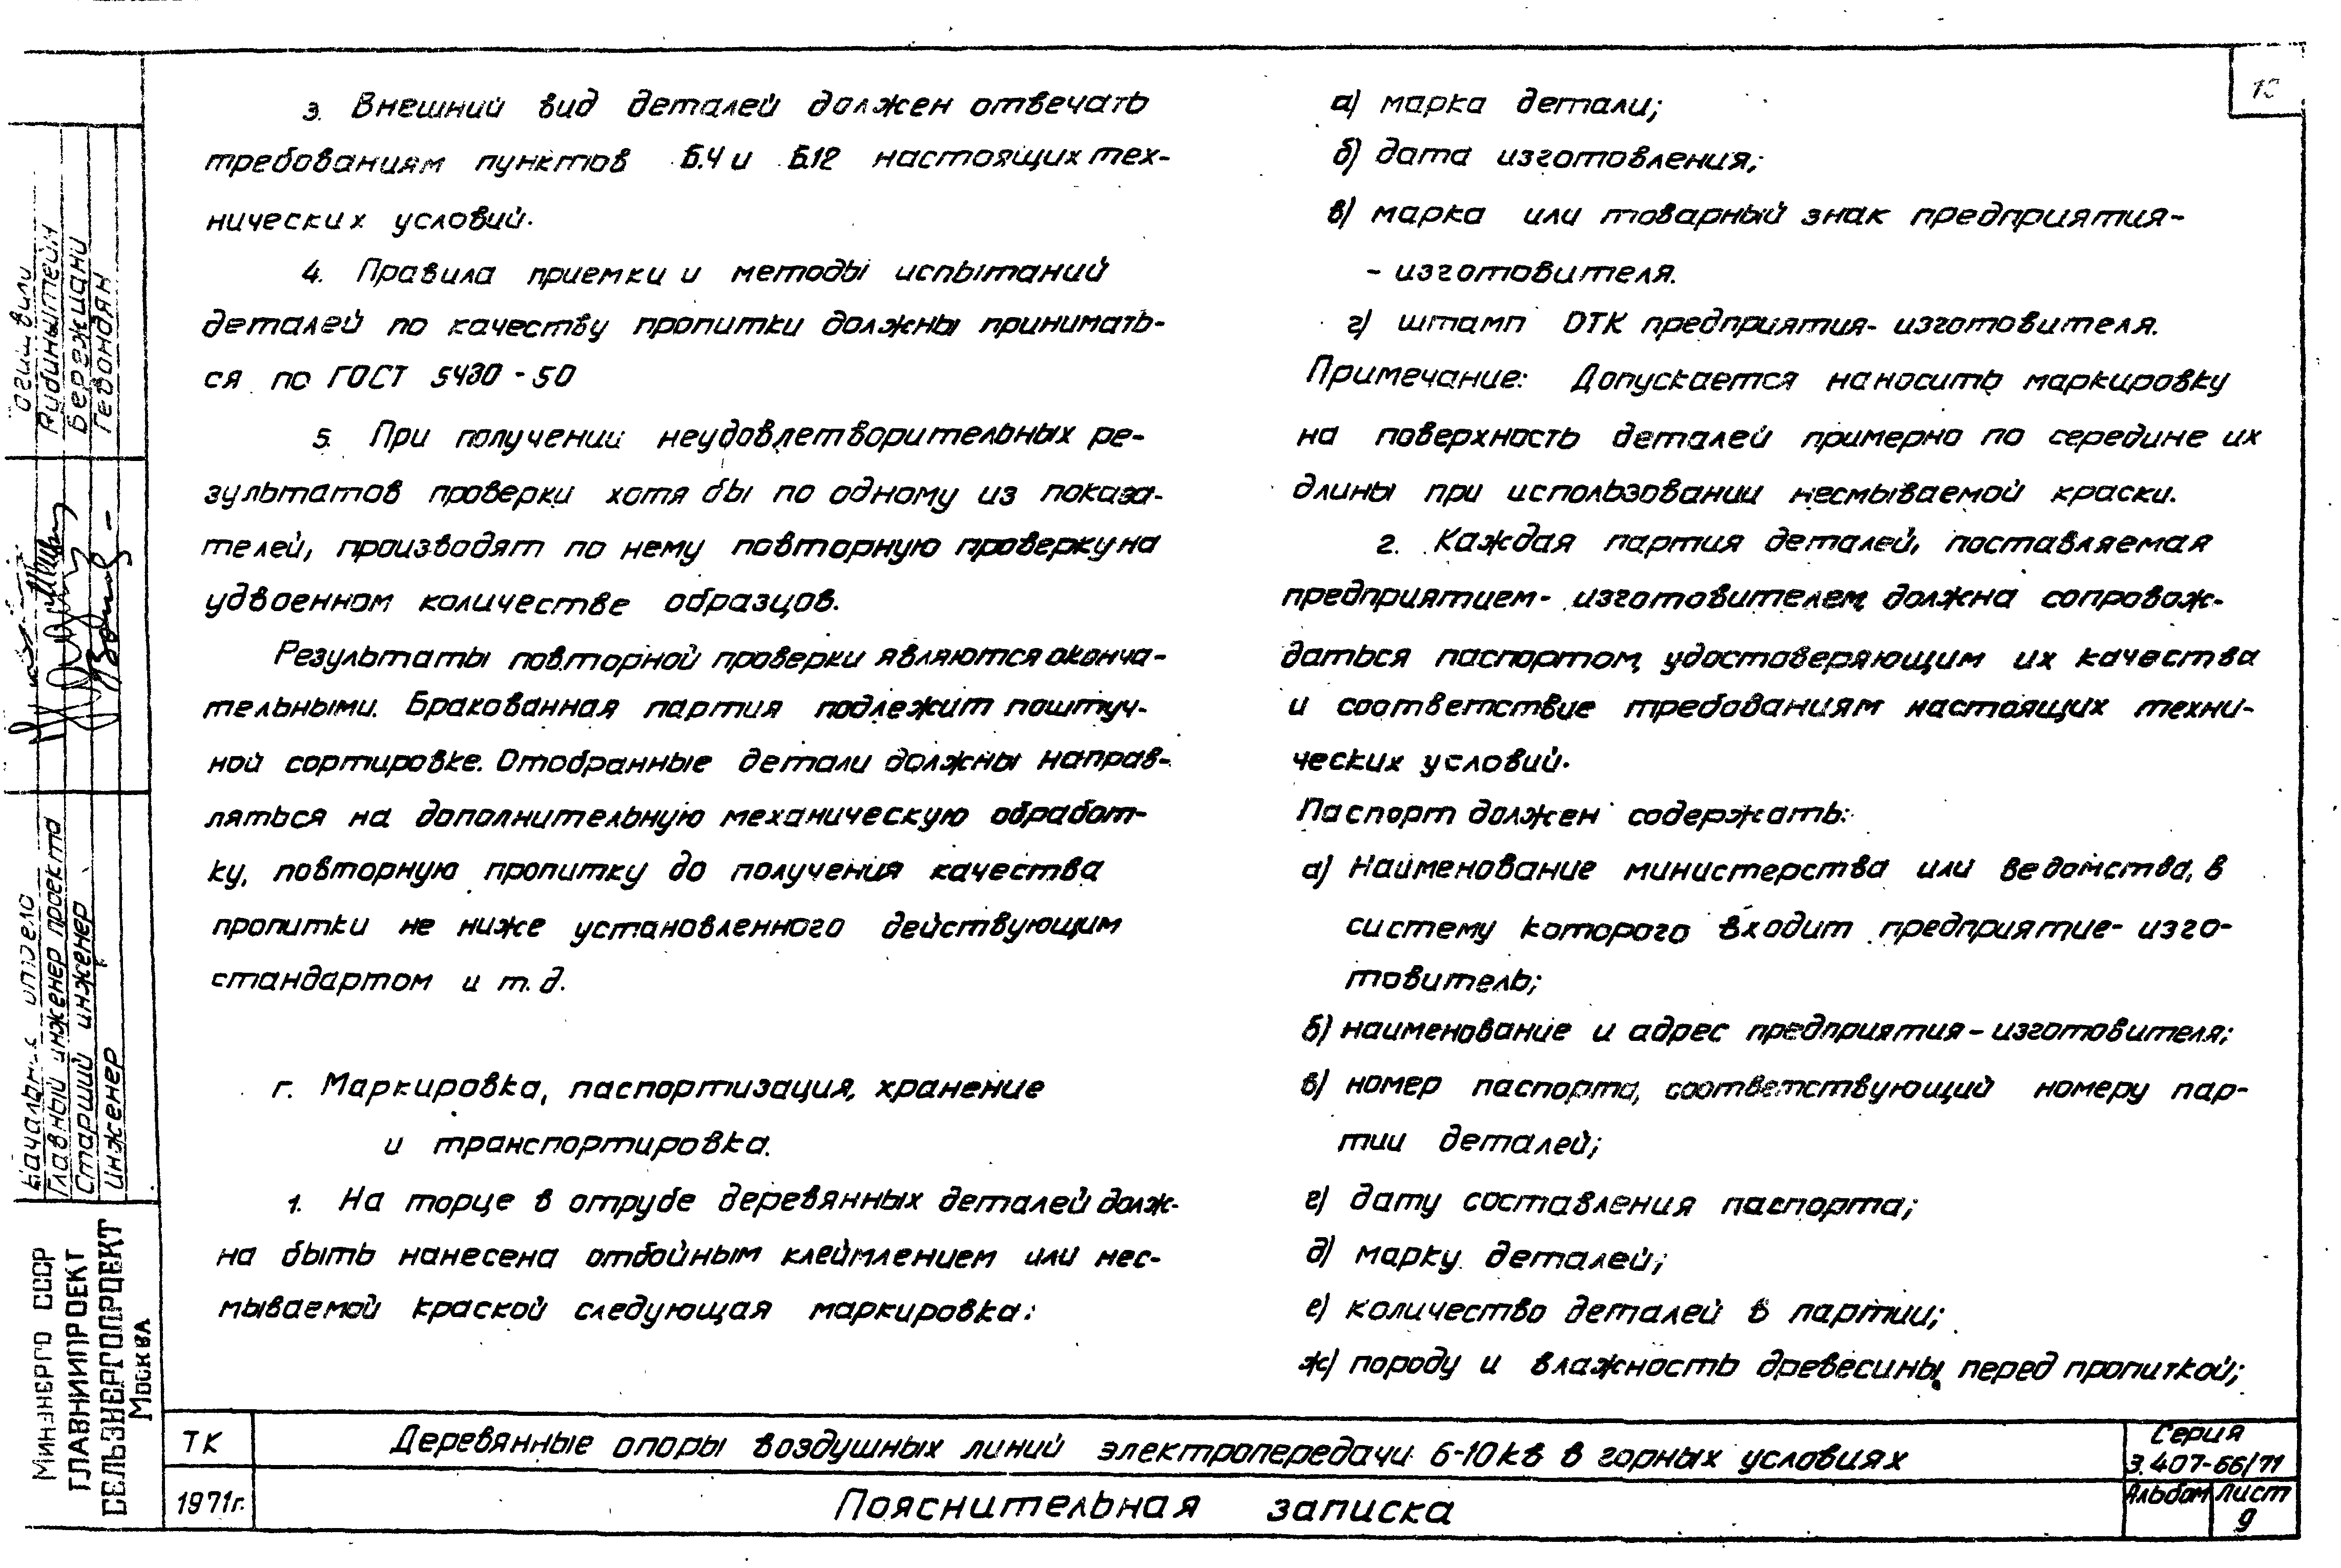 3. Внешний вид деталей должен отвечать
требованиям пунктов Б.4 и Б.12 настоящих тех-
нических условий.
4. Правила приемки и методы испытаний
деталей по качеству пропитки должны принимать-
ся по ГОСТ 5430-50
5. При получении неудовлетворительных ре-
зультатов проверки хотя бы по одному из показа-
телей, производят по нему повторную проверку на
удвоенном количестве образцов.
Результаты повторной проверки являются оконча-
тельными. Бракованная партия подлежит поштуч-
ной сортировке. Отобранные детали должны направ-
ляться на дополнительную механическую обработ-
ку, повторную пропитку до получения качества
пропитки не ниже установленного действующим
стандартом и т.д.
г. Маркировка, паспортизация, хранение
и транспортировка.
1. На торце в отрубе деревянных деталей долж-
на быть нанесена отбойным клеймлением или нес-
мываемой краской следующая маркировка:
а) марка детали;
б) дата изготовления;
в) марка или товарный знак предприятия-
- изготовителя.
г) штамп ОТК предприятия- изготовителя.
Примечание: Допускается наносить маркировку
на поверхность деталей примерно по середине их
длины при использовании несмываемой краски.
2. Каждая партия деталей, поставляемая
предприятием- изготовителем, должна сопровож-
даться паспортом, удостоверяющим их качества
и соответствие требованиям настоящих техни-
ческих условий.
Паспорт должен содержать:
а) Наименование министерства или ведомства, в
систему которого входит предприятие- изго-
товитель;
б) наименование и адрес предприятия-изготовителя;
в) номер паспорта, соответствующий номеру пар-
тии деталей;
г) дату составления паспорта;
д) марку деталей;
е) количество деталей в партии;
ж) породу и влажность древесины перед пропиткой;
Начальник отдела
Главный инженер проекта Рубинштейн
Старший инженер Бережиани
Инженер Гевондян
Минэнерго СССР
ГЛАВНИИПРОЕКТ
СЕЛЬЭНЕРГОПРОЕКТ
Москва
ТК
1971г.
Деревянные опоры воздушных линий электропередачи 6-10кв в горных условиях
Пояснительная записка
Серия
3.407-66/71
Альбом Лист
9